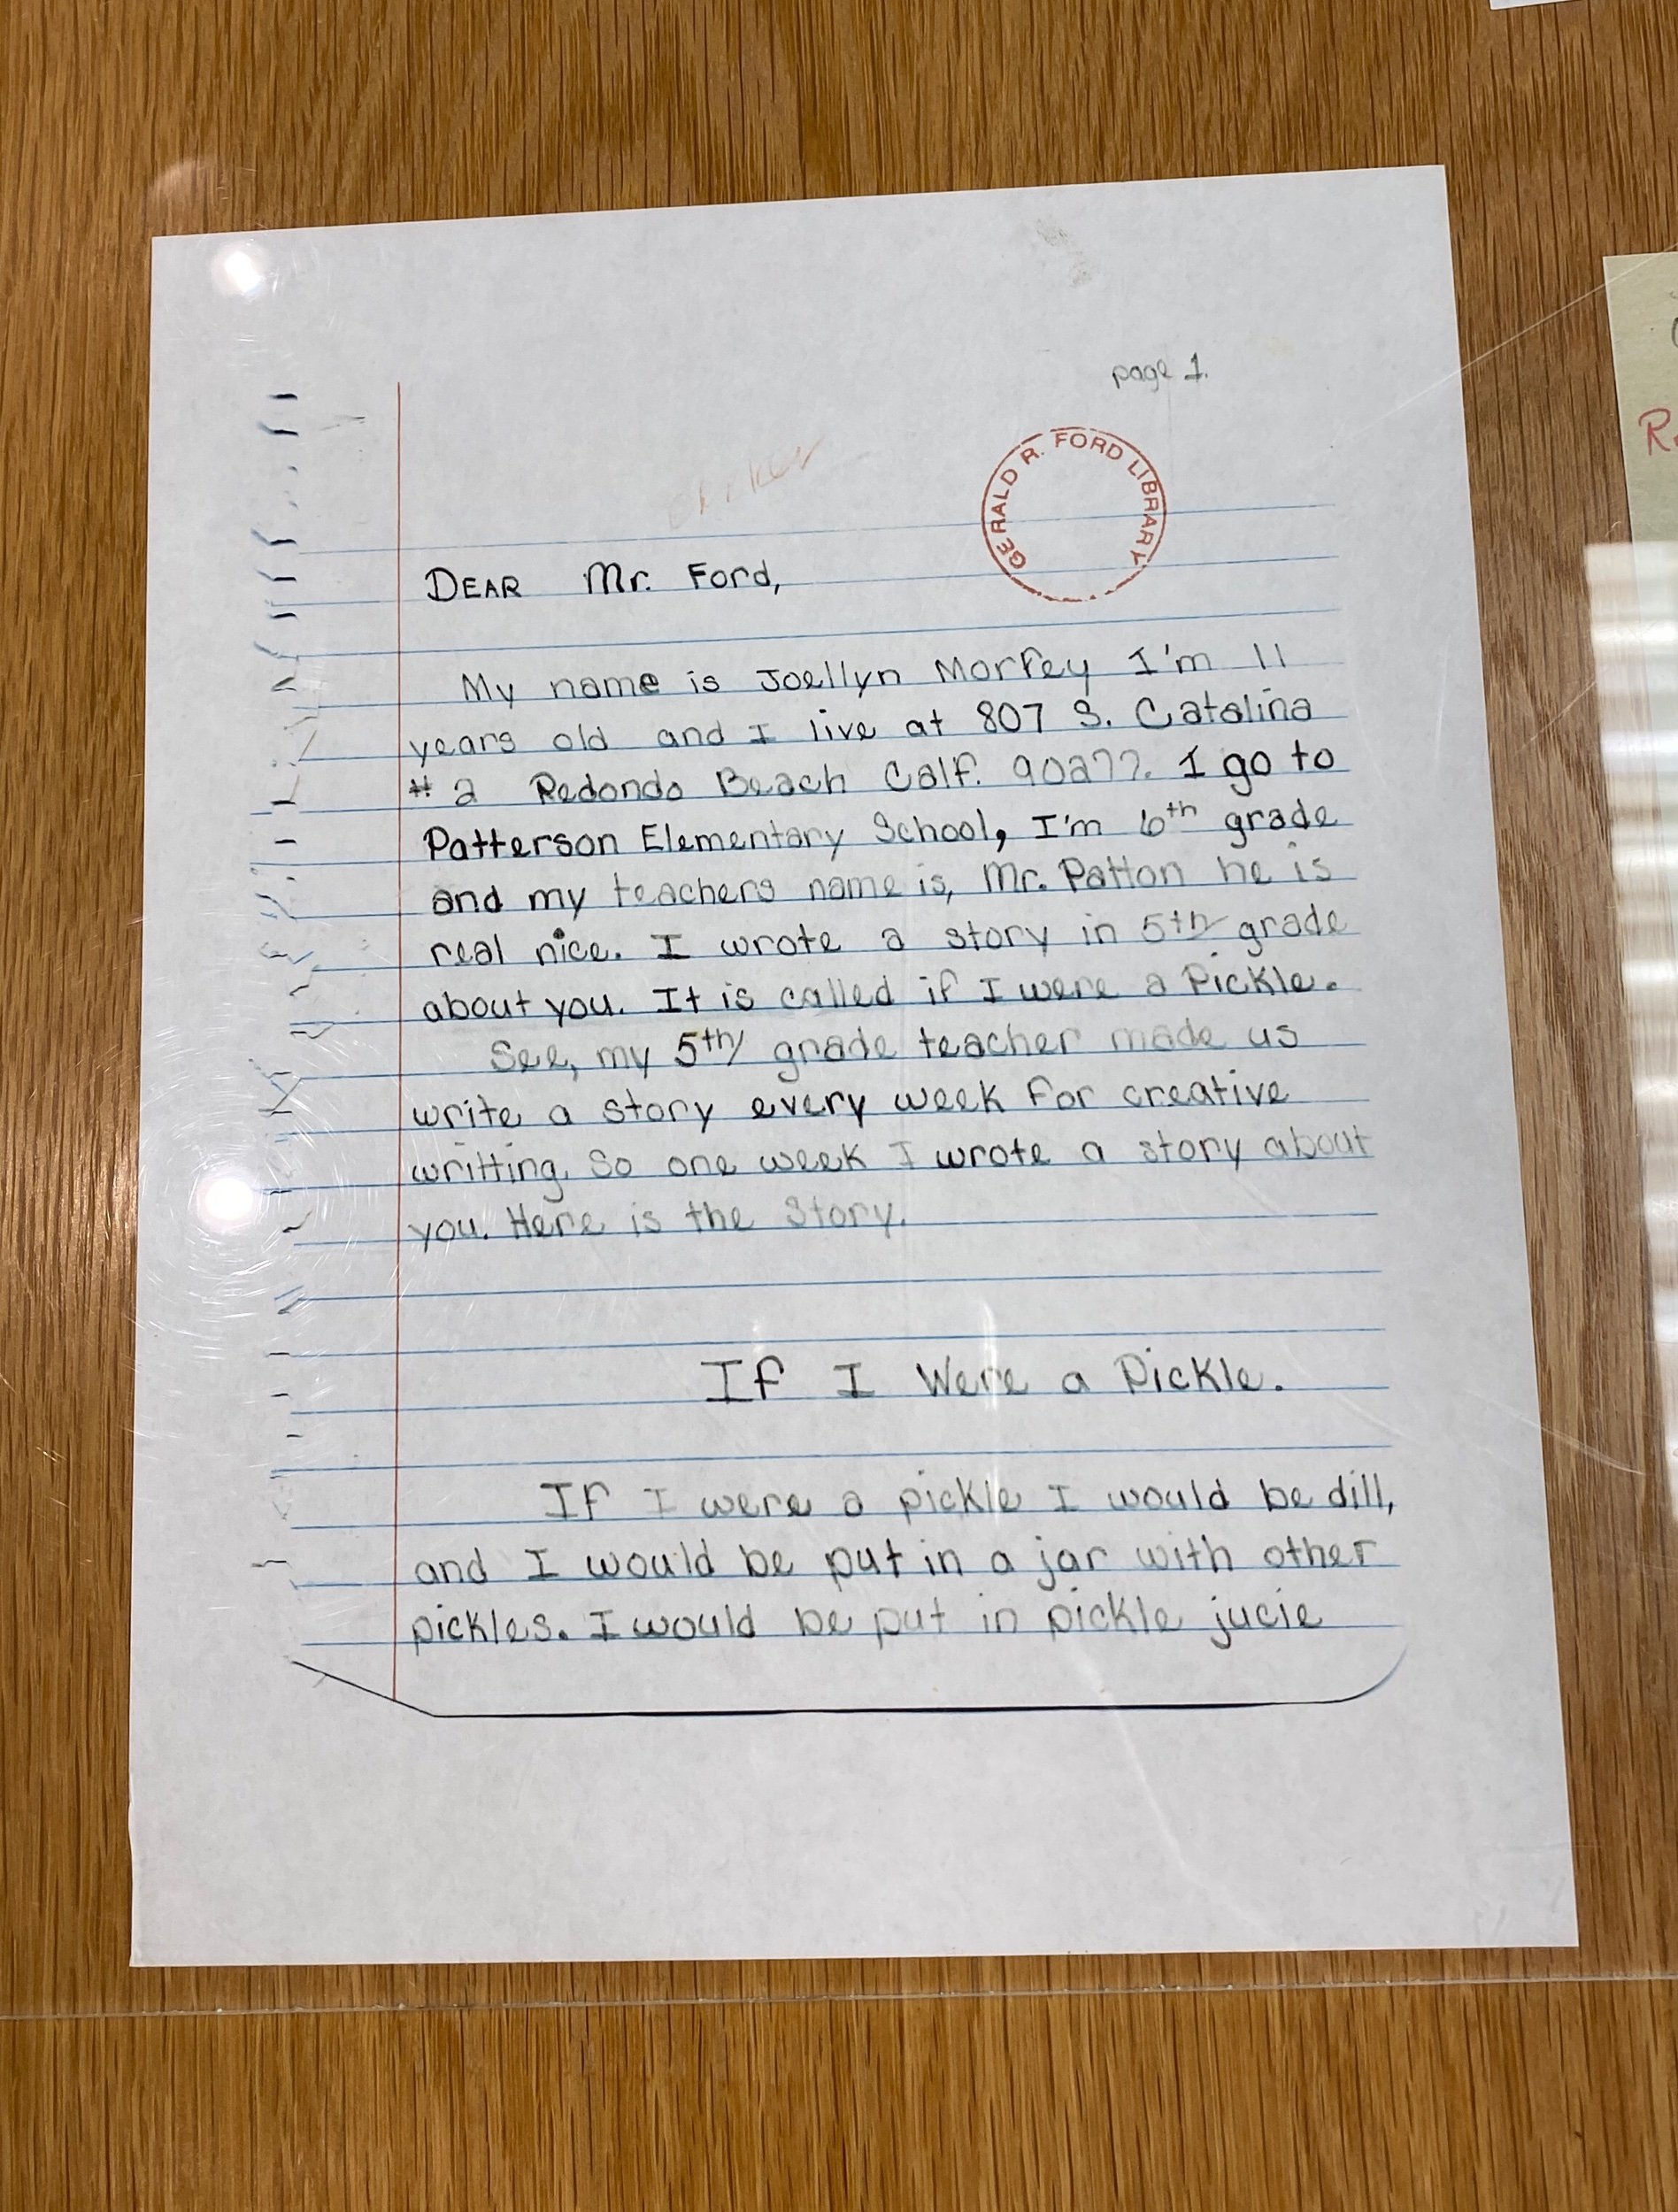 page 1.
GERALD R. FORD LIBRARY
DEAR Mr. Ford,
My name is Joellyn Morfey I'm 11
years old and I live at 807 S. Catalina
# 2 Redondo Beach Calf. 90277. I go to
Patterson Elementary School, I'm 6th grade
and my teachers name is, Mr. Patton he is
real nice. I wrote a story in 5th grade
about you. It is called if I were a Pickle.
See, my 5th grade teacher made us
write a story every week for creative
writting. So one week I wrote a story about
you. Here is the Story.
If I Were a Pickle.
If I were a pickle I would be dill,
and I would be put in a jar with other
pickles. I would be put in pickle jucie